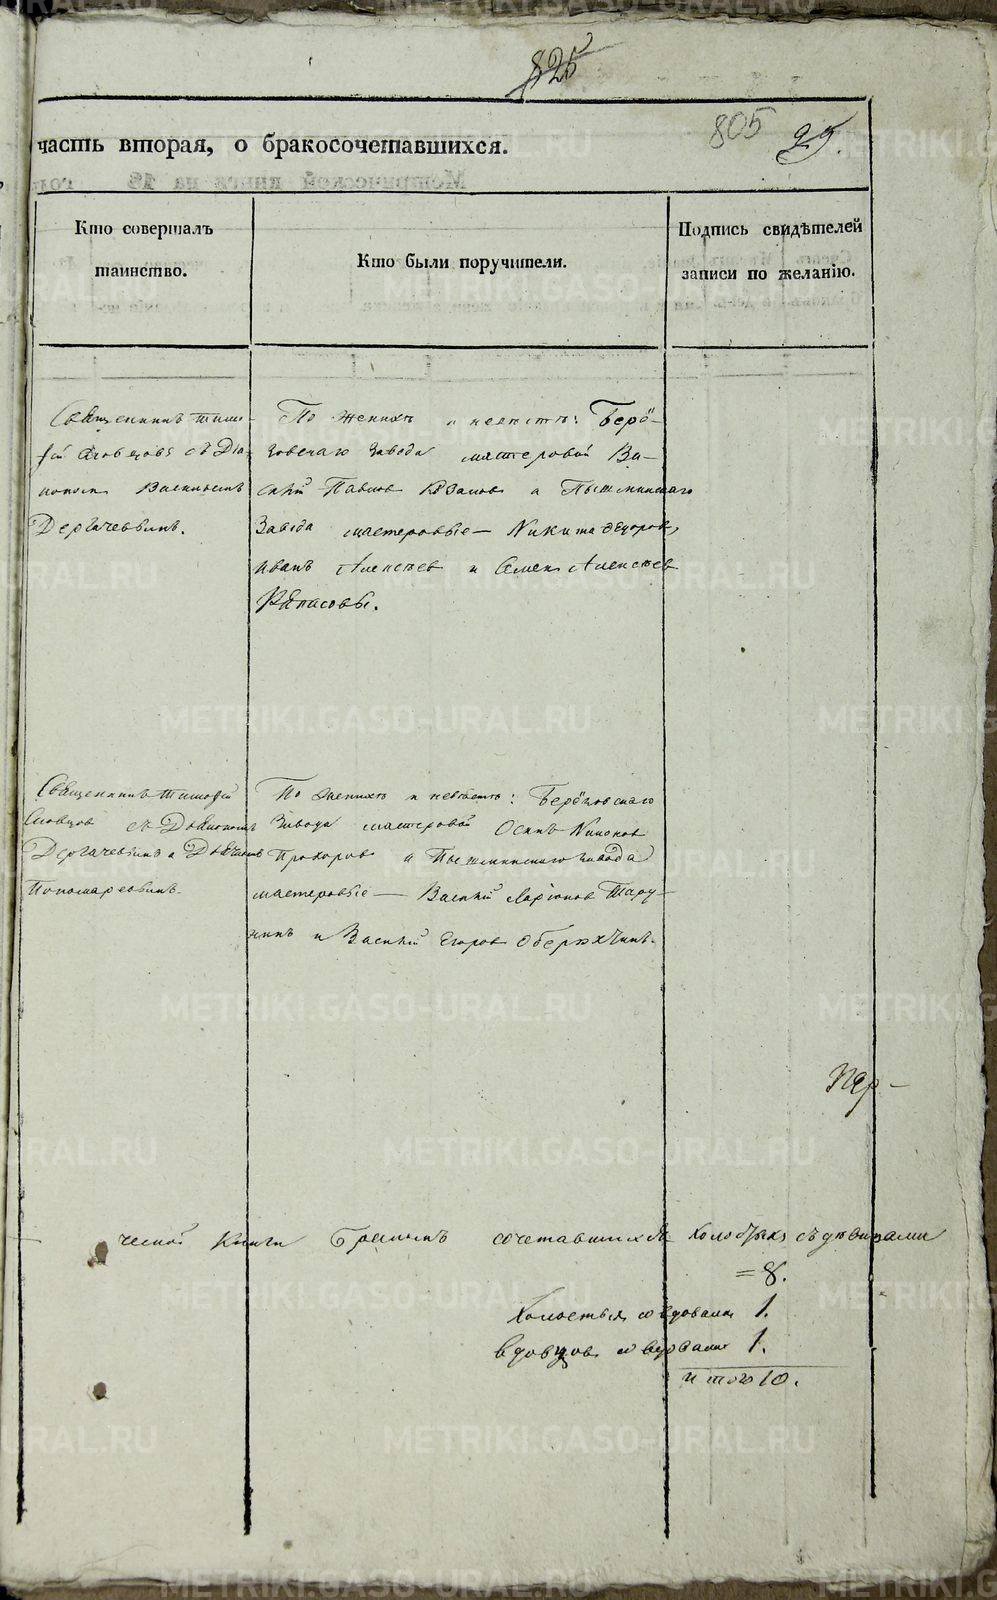 825
805
29.
часть вторая, о бракосочетавшихся.
Кто совершалъ
таинство.
Кто были поручители.
Подпись свидѣтелей
записи по желанію.
Священникъ Тимо-
фей Словцовъ съ Діа-
кономъ Василіемъ
Дергачевымъ.
По женихѣ и невѣстѣ: Берё-
зовскаго завода мастеровой Ва-
силій Павловъ а Пышминскаго
Завода мастеровые — Никита Ѳедоровъ,
Иванъ Алексѣев и Семен Алексѣев
Священникъ Тимофей
Словцов съ Діакономъ
Дергачевымъ и Дьячкомъ
Пономаревымъ
По женихѣ и невѣстѣ: Берёзовскаго
Завода мастеровой Осипъ
Прохоров а Пышминскаго завода
мастеровые — Василій Ларіонов Тару-
нинъ и Василій Егоров
ческой книги Бракомъ сочетавшихся холостых съ дѣвицами
=8.
Холостыя со вдовами 1.
вдовцов со вдовами 1.
итого 10.
METRIKI.GASO-URAL.RU